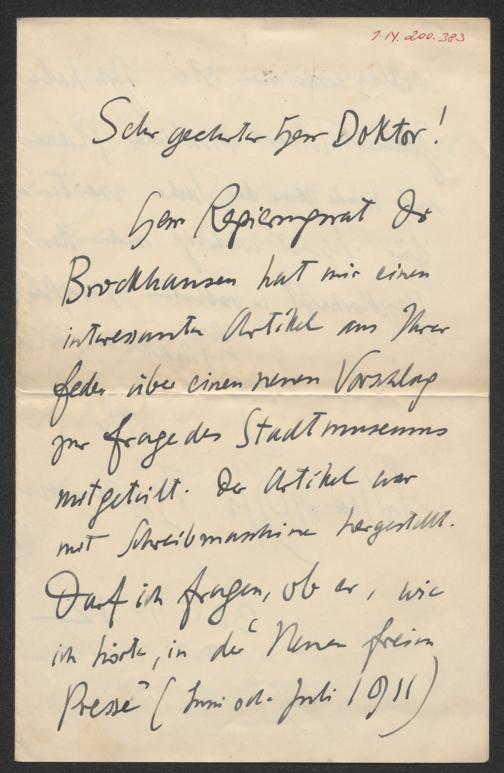 1.14.200.383
Sehr geehrter Herr Doktor!
Herr Regierungsrat Dr
Brockhausen hat mir einen
interessanten Artikel aus Ihrer
Feder über einen neuen Vorschlag
zur Frage des Stadtmuseums
mitgeteilt. Der Artikel war
mit Schreibmaschine hergestellt.
Darf ich fragen, ob er, wie
ich hörte, in der "Neuen freien
Presse" (Juni oder Juli 1911)